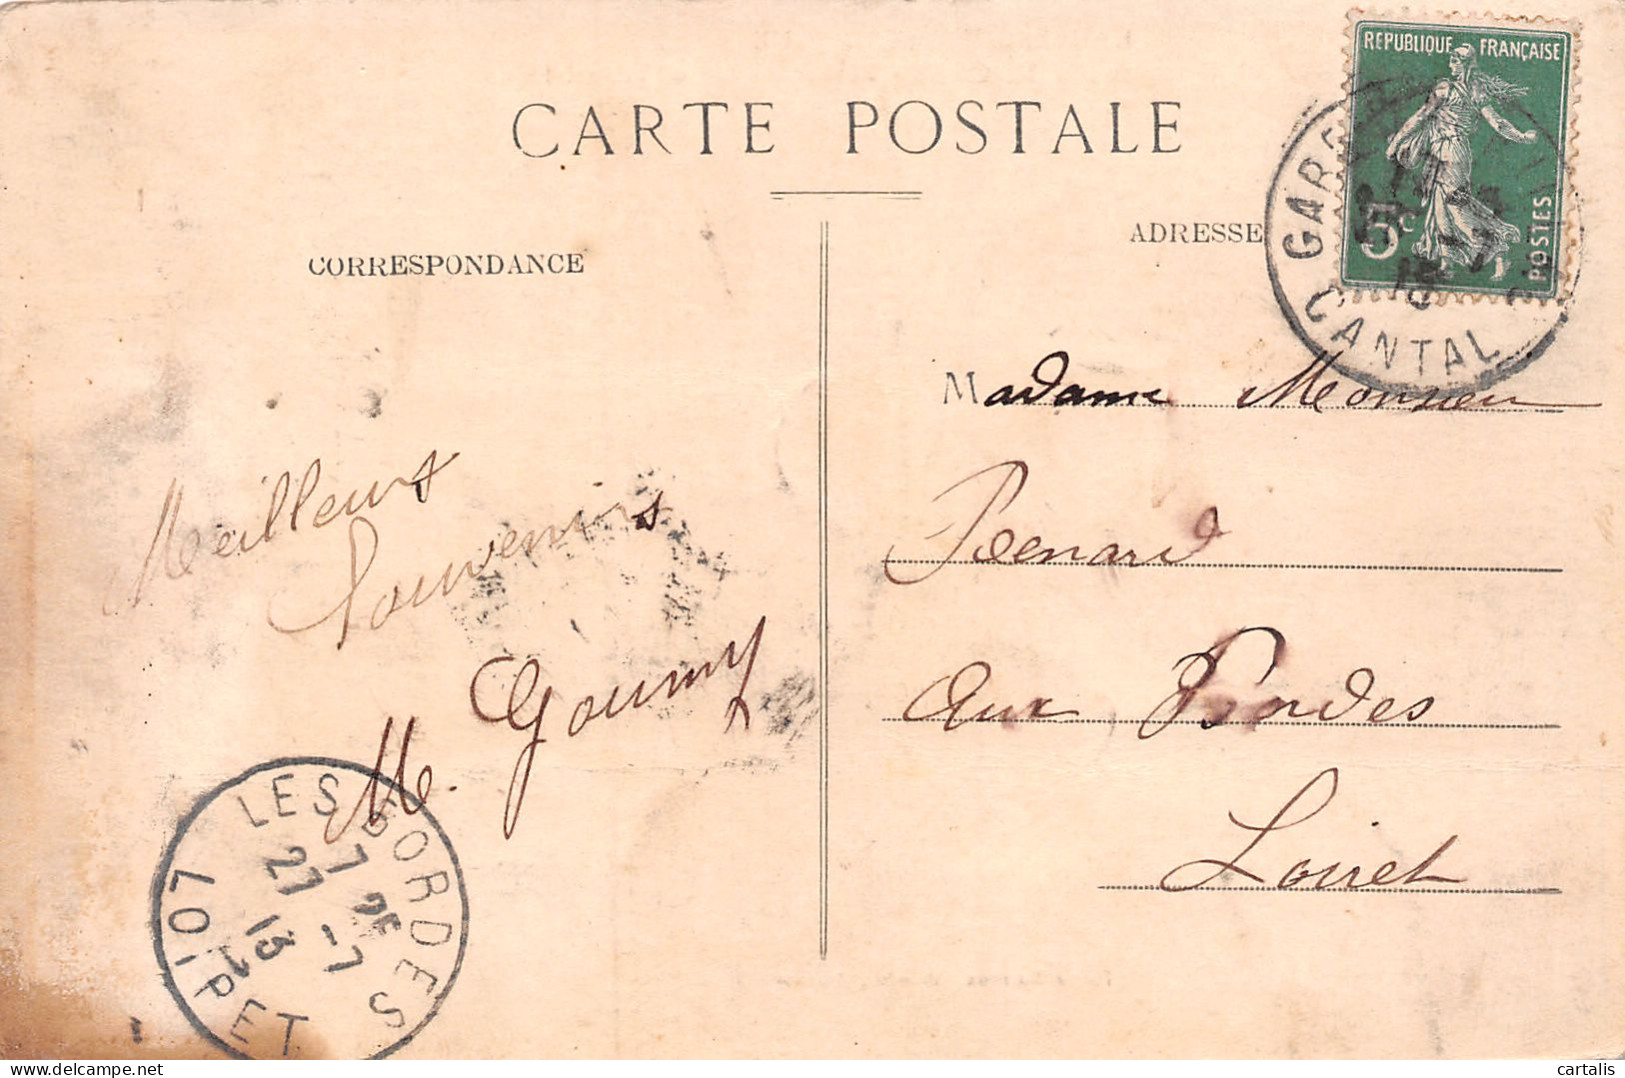 CARTE POSTALE
CORRESPONDANCE
ADRESSE
REPUBLIQUE FRANÇAISE
5c
POSTES
CANTAL
Madame Monsieur
Benard
aux Bordes
Loiret
Meilleurs
Souvenirs
M. Goumy
LES BORDES
7 25
27 -7
13
LOIRET
cartalis